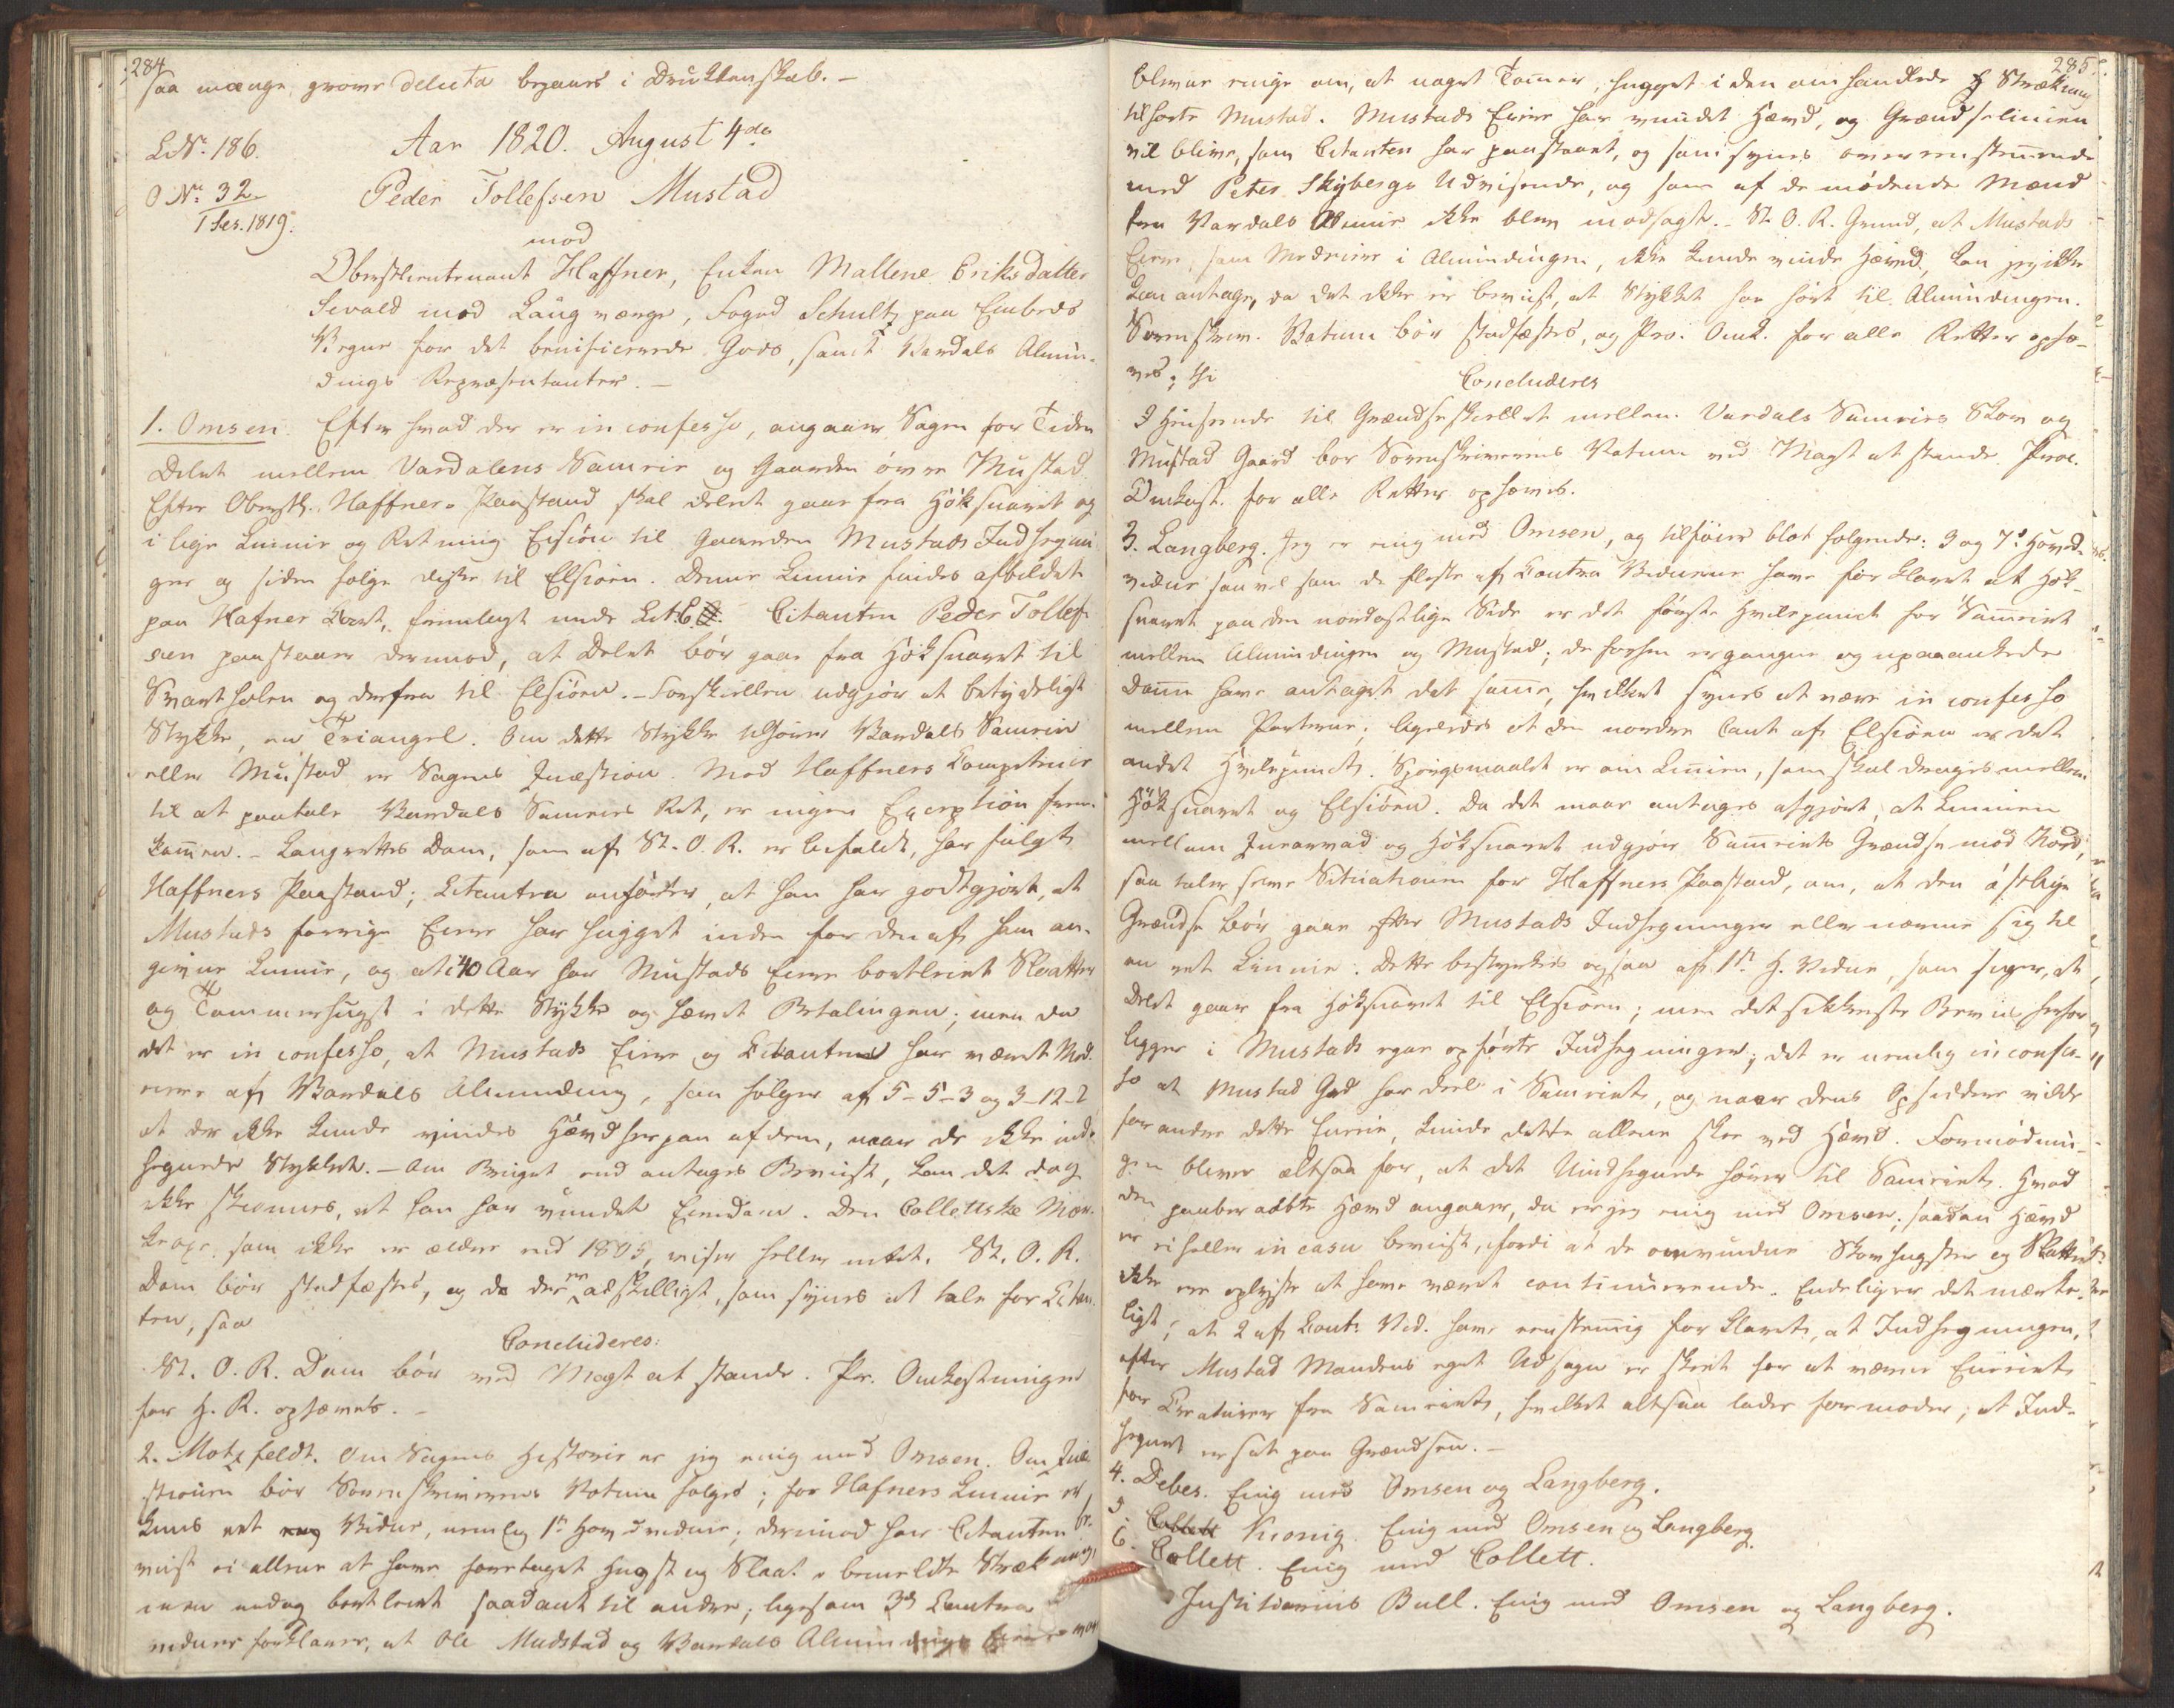 284
saa mange grove delicta begaaes i Drukkenskab. –
L.No. 186.
O No. 32
1 Ses. 1819.
Aar 1820. August 4de
Peder Tollefsen Mustad
mod
Oberstlieutenant Haffner, Enken Mallene Eriksdatter
Sevald med Laugværge, Foged Schultz paa Embeds
Vegne for det benificerede Gods, samt Vardals Almin-
dings Repræsentanter. –
1. Omsen. Efter hvad der er in confesso, angaaer Sagen for Tiden
Delet mellem Vardalens Sameie og Gaarden øvre Mustad
Efter Oberstl. Haffners Paastand skal delet gaae fra Höksnaret og
i lige Linnie og Retning til Gaarden Mustads Indhegnin
ger og siden følge disse til Elsiøen. Denne Linnie findes afbildet
paa Hafners Kart, fremlagt under Lit. C. Citanten Peder Tollef-
sen paastaaer derimod, at Delet bör gaae fra Höksnaret til
Svartholen og derfra til Elsiöen. – Forskiellen udgjör et betydeligt
Stykke, en Triangel. Om dette Stykke tilhörer Vardals Sameie
eller Mustad er Sagens Quæstion. Mod Haffners Competence
til at paatale Vardals Sameies Ret, er ingen Exception frem-
kommen. – Laugrettes Dom, som af St. O. R. er befalet, har fulgt
Haffners Paastand; Citanten anförer, at han har godtgjort, at
Mustads forrige Eiere har hugget inden for den af ham an-
givne Linnie, og at i 40 Aar har Mustads Eiere bortleiet Slaatter
og Tommerhugst i dette Stykke og hævet Betalingen; men da
det er in confesso, at Mustads Eiere og Citanten har været Med-
eiere af Vardals Alminding, saa fölger af 5-5-3 og 3-12-2
at der ikke kunde vindes Hævd herpaa af dem, naar de ikke ind-
hegnede Stykket. – Om Bruget end antages Beviist, kan det dog
ikke skiönnes, at han har vundet Eiendom. Den Collettske
som ikke er ældre end 1805, viser heller intet. St. O. R.
Dom bör stadfæstes, og da der er adskilligt, som synes at tale for Citan-
ten, saa
Concluderes:
St. O. R. Dom bör ved Magt at stande. Pr. Omkostninger
for H. R. ophæves. –
2. Motzfeldt. Om Sagens Historie er jeg enig med Omsen. Om Quæ-
stionen bör Sorenskriverens Votum fölges; for Hafners Linnie er
kuns et Vidne, nemlig 1te Hovedvidne; derimod har Citanten be-
viist ei allene at have foretaget Hugst og Slaat i bemeldte Strækning,
men endog bortleiet saadant til andre; ligesom 3de Contra
vidner forklarer, at Ole Mustad og Vardals Almindings Eiere
285.
bleve enige om, at noget Tømer, hugget i den omhandlede Strækning
tilhørte Mustad. Mustads Eiere har vundet Hævd, og Grændselinien
vil blive, som Citanten har paastaaet, og som synes overenstemmende
med Peter Skybergs Udvisende, og som af de mødende Mænd
fra Vardals Almue ikke blev modsagt. – St. O. R. Grund, at Mustads
Eiere, som Medeiere i Almindingen, ikke kunde vinde Hævd, kan jeg ikke
antage, da det ikke er beviist, at Stykket har hört til Almindingen.
Sorenskriv. Votum bör stadfæstes, og Pro. Omk. for alle Retter ophæ-
ves; thi
Concluderes
I Henseende til Grændseskiellet mellem Vardals Sameies Skov og
Mustad Gaard bör Sorenskriverens Votum ved Magt at stande. Proc.
Omkost. for alle Retter ophæves.
3. Langberg. Jeg er enig med Omsen, og tilföier blot følgende: 3 og 7de Hoved-
vidne saavelsom de fleste af Contra Vidnerne have forklaret at Hök-
snaret paa den nordostlige Side er det første Hvilepunct for Sameiet
mellem Almindingen og Mustad; de forhen ergangne og upaaankede
Domme have antaget det samme, hvilket synes at være in confesso
mellem Parterne; ligeledes at den nordre Cant af Elsiöen er det
andet Hvilepunct. Spörgsmaalet er om Linien, som skal drages mellem
Höksnaret og Elsiöen. Da det maae antages afgjort, at Linnien
mellem og Höksnaret udgjör Sameiets Grændse mod Nord,
saa taler selve Situationen for Haffners Paastand, om, at den östlige
Grændse bör gaae efter Mustads Indhegninger eller nærme sig til
en ret Linnie. Dette bestyrkes ogsaa af 1te H. Vidne, som siger, at
Delet gaaer fra Höksnaret til Elsiöen; men det sikkerste Beviis herfor
ligger i Mustads egne opförte Indhegninger; det er nemlig in confes-
so at Mustad Grd har deel i Sameiet, og naar dens Opsiddere vilde
forandre dette Eierie, kunde dette allene skee ved Hævd. Formodnin-
gen bliver altsaa for, at det Uindhegnede hörer til Sameiet. Hvad
den paaberaabte Hævd angaaer, da er jeg enig med Omsen; saadan Hævd
er ei heller in casu beviist, fordi at de omvundne Skovhugster og Slaatter
ikke ere oplyste at have været continuerende. Endelig er det mærke-
ligt, at 2 af Contr. Vid. have eenstemmig forklaret, at Indhegningen,
efter Mustad Mandens eget Udsagn er skeet for at værne Eierie
for Creaturer fra Sameiet, hvilket altsaa lader formode, at Ind-
hegnet er sat paa Grændsen. –
4. Debes. Enig med Omsen og Langberg.
5. Kronig. Enig med Omsen og Langberg.
6. Collett. Enig med Collett.
Justitiarius Bull. Enig med Omsen og Langberg.